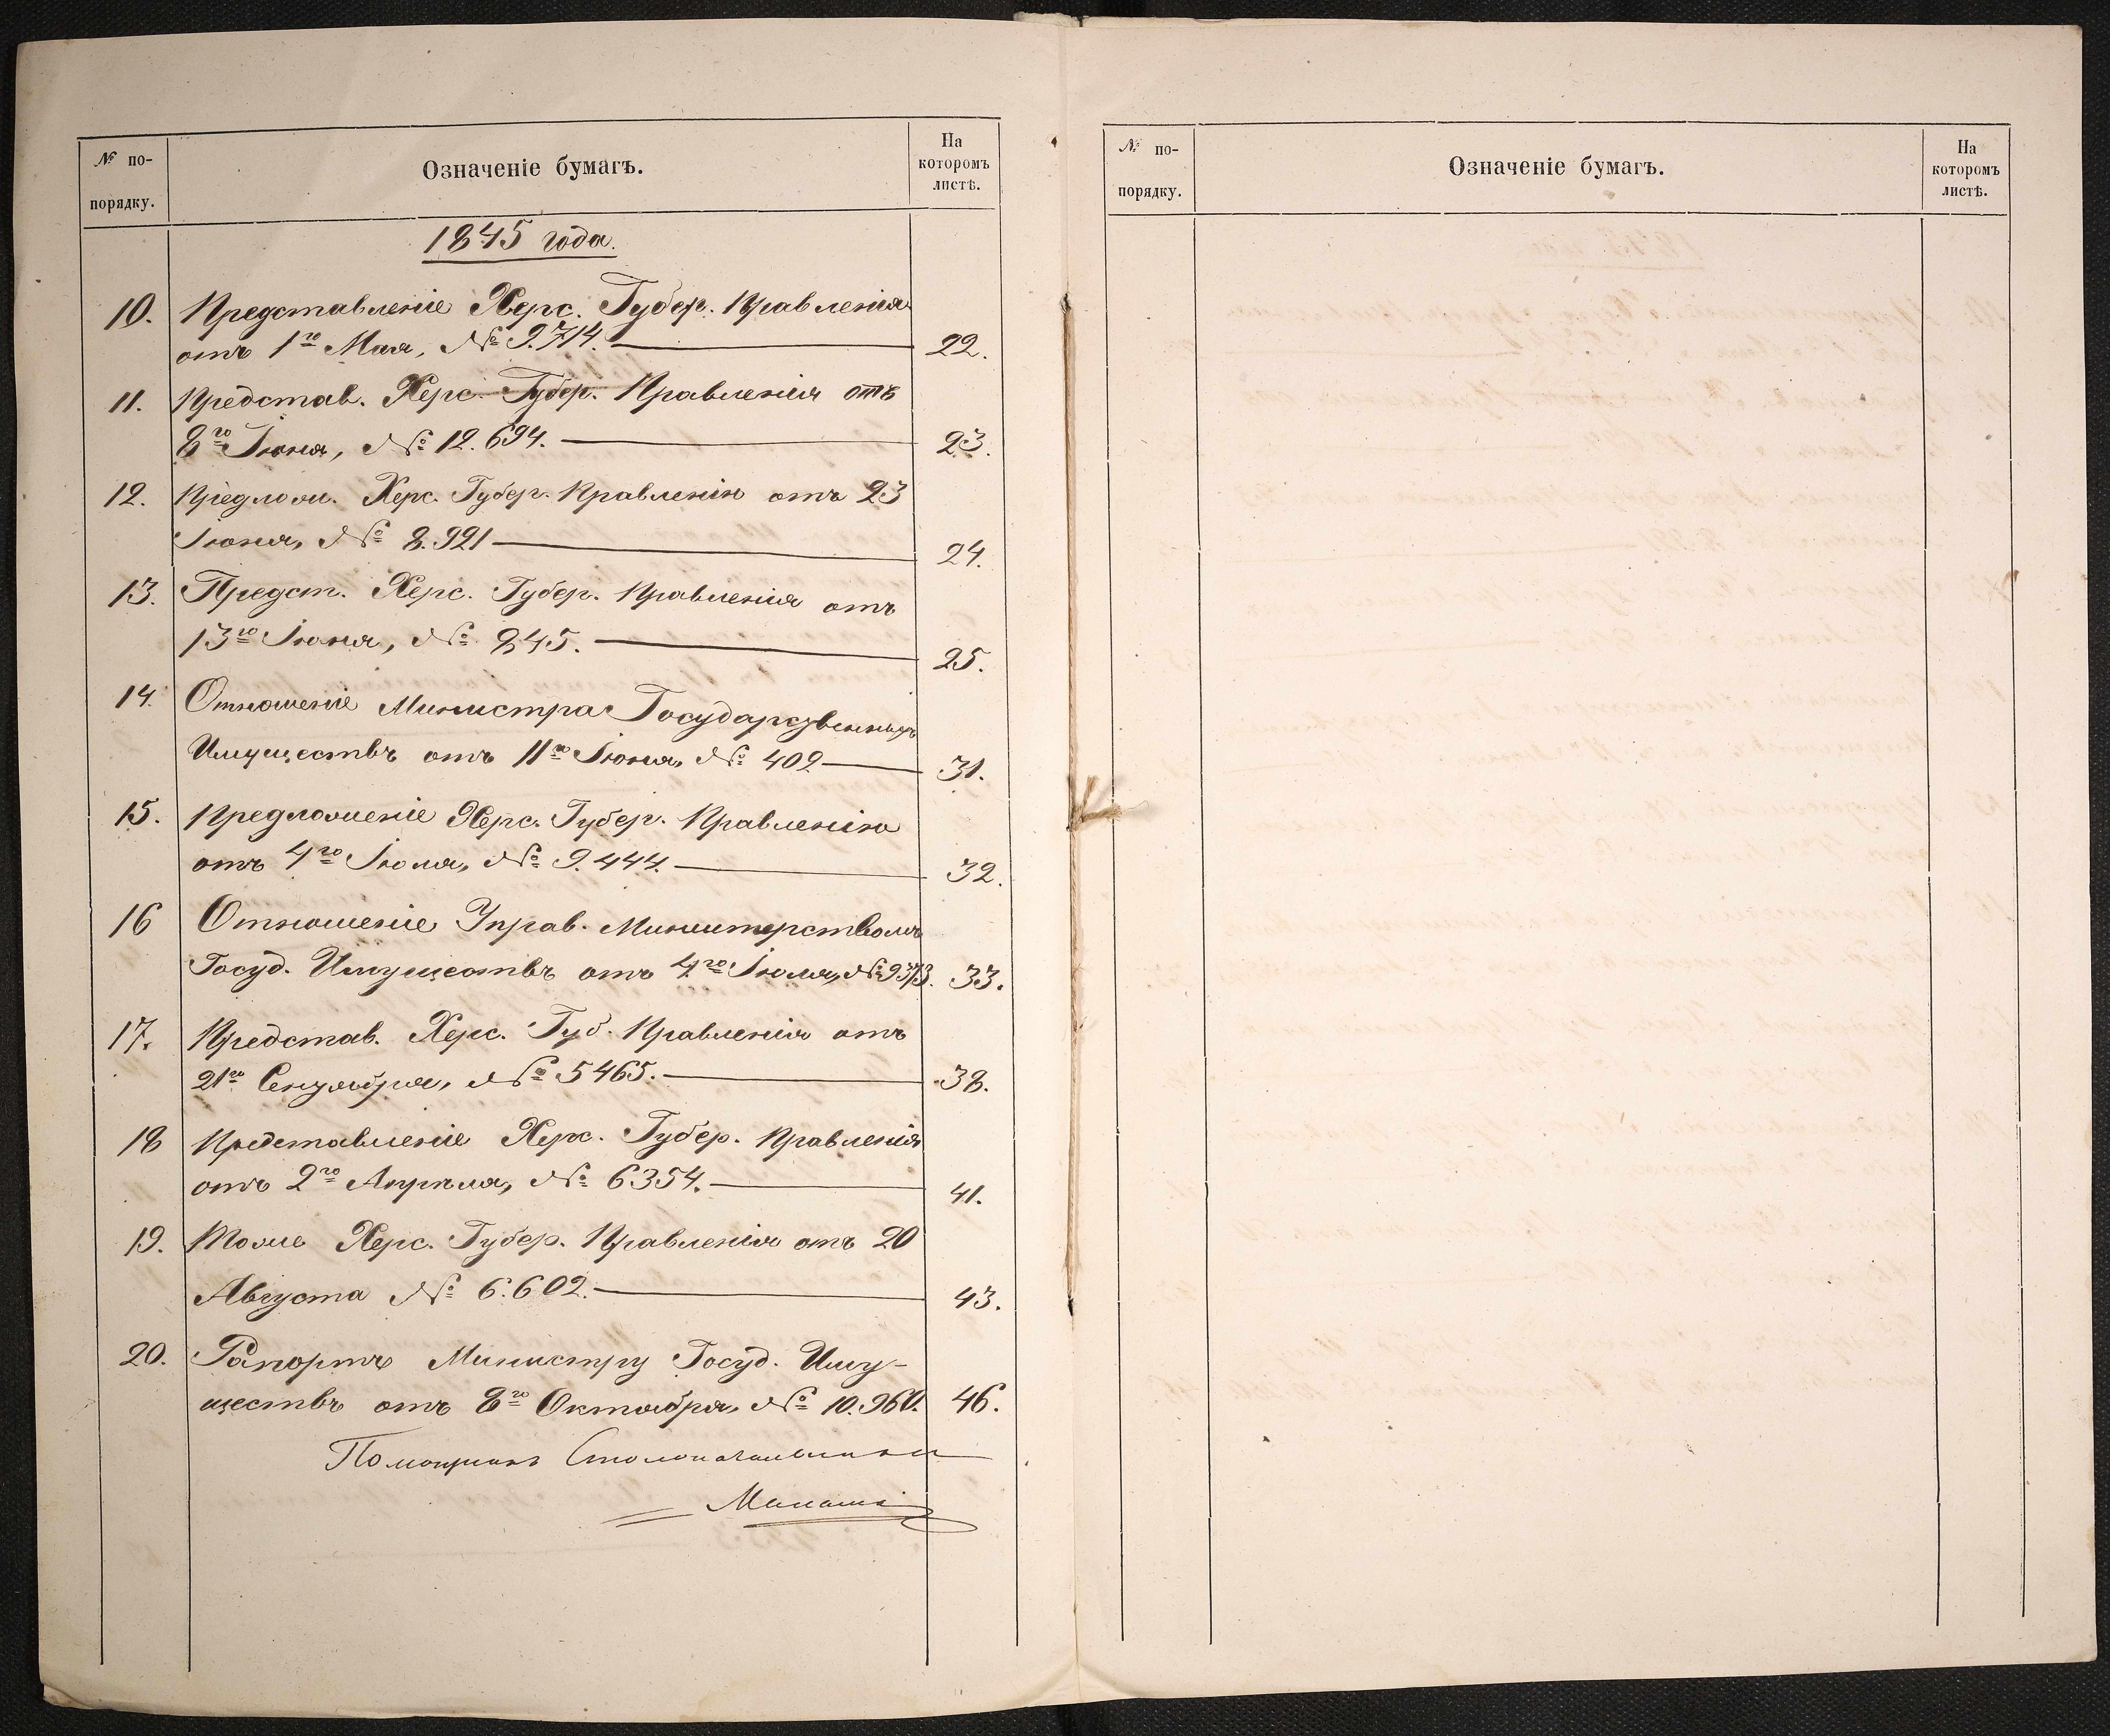 № по-
порядку.
Означеніе бумагъ.
На
которомъ
листѣ.
1845 года.
10. Представленіе Херс. Губер. Правленія
отъ 1го Мая, № 9.714. 22.
11. Представ. Херс. Губер. Правленія отъ
8го Іюня, № 12.694. 23.
12. Предлож. Херс. Губер. Правленію отъ 23
Іюня, № 8.921 24.
13. Предст. Херс. Губер. Правленія отъ
13го Іюня, № 845. 25.
14. Отношеніе Министра Государственныхъ
Имуществъ отъ 11го Іюня, № 402 31.
15. Предложеніе Херс. Губер. Правленію
отъ 4го Іюля, № 9.444. 32.
16 Отношеніе Управ. Министерствомъ
Госуд. Имуществъ отъ 4го Іюля, № 9373. 33.
17. Представ. Херс. Губ. Правленія отъ
21го Сентября, № 5465. 38.
18 Представленіе Херс. Губер. Правленія
отъ 2го Апрѣля, № 6354. 41.
19. Тоже Херс. Губер. Правленія отъ 20
Августа № 6.602. 43.
20. Рапортъ Министру Госуд. Иму-
ществъ отъ 8го Октября, № 10.960. 46.
Помощникъ Столоначальника
№ по-
порядку.
Означеніе бумагъ.
На
которомъ
листѣ.